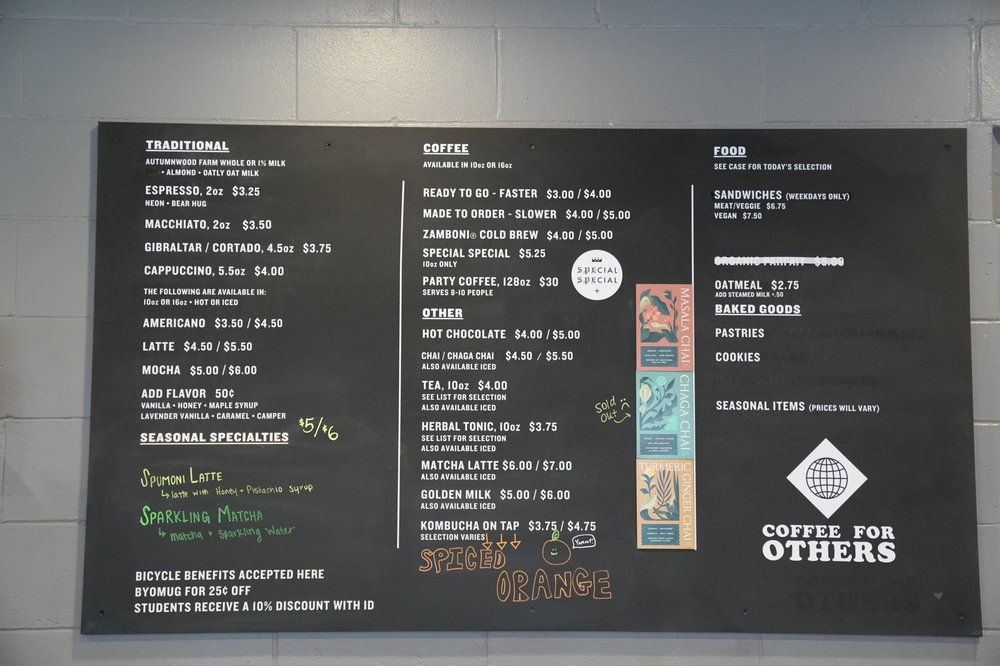 TRADITIONAL
AUTUMNWOOD FARM WHOLE OR 1% MILK
• ALMOND • OATLY OAT MILK
ESPRESSO, 2oz $3.25
NEON • BEAR HUG
MACCHIATO, 2oz $3.50
GIBRALTAR / CORTADO, 4.5oz $3.75
CAPPUCCINO, 5.5oz $4.00
THE FOLLOWING ARE AVAILABLE IN:
10oz OR 16oz • HOT OR ICED
AMERICANO $3.50 / $4.50
LATTE $4.50 / $5.50
MOCHA $5.00 / $6.00
ADD FLAVOR 50¢
VANILLA • HONEY • MAPLE SYRUP
LAVENDER VANILLA • CARAMEL • CAMPER
SEASONAL SPECIALTIES $5/$6
SPUMONI LATTE
↳ latte with Honey + Pistachio syrup
SPARKLING MATCHA
↳ matcha + sparkling water
BICYCLE BENEFITS ACCEPTED HERE
BYOMUG FOR 25¢ OFF
STUDENTS RECEIVE A 10% DISCOUNT WITH ID
COFFEE
AVAILABLE IN 10oz OR 16oz
READY TO GO - FASTER $3.00 / $4.00
MADE TO ORDER - SLOWER $4.00 / $5.00
ZAMBONI® COLD BREW $4.00 / $5.00
SPECIAL SPECIAL $5.25
10oz ONLY
PARTY COFFEE, 128oz $30
SERVES 8-10 PEOPLE
SPECIAL
SPECIAL
OTHER
HOT CHOCOLATE $4.00 / $5.00
CHAI / CHAGA CHAI $4.50 / $5.50
ALSO AVAILABLE ICED
TEA, 10oz $4.00
SEE LIST FOR SELECTION
ALSO AVAILABLE ICED
HERBAL TONIC, 10oz $3.75
SEE LIST FOR SELECTION
ALSO AVAILABLE ICED
MATCHA LATTE $6.00 / $7.00
ALSO AVAILABLE ICED
GOLDEN MILK $5.00 / $6.00
ALSO AVAILABLE ICED
KOMBUCHA ON TAP $3.75 / $4.75
SELECTION VARIES
SPICED
ORANGE
Yumm!
MASALA CHAI
sold
out
CHAGA CHAI
TURMERIC GINGER CHAI
FOOD
SEE CASE FOR TODAY'S SELECTION
SANDWICHES (WEEKDAYS ONLY)
MEAT/VEGGIE $6.75
VEGAN $7.50
ORGANIC PARFAIT
OATMEAL $2.75
ADD STEAMED MILK +.50
BAKED GOODS
PASTRIES
COOKIES
SEASONAL ITEMS (PRICES WILL VARY)
COFFEE FOR
OTHERS